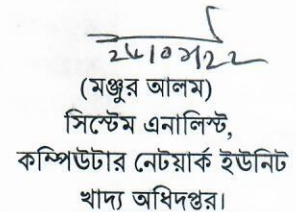 (মঞ্জুর আলম)
সিস্টেম এনালিস্ট,
কম্পিউটার নেটয়ার্ক ইউনিট
খাদ্য অধিদপ্তর।